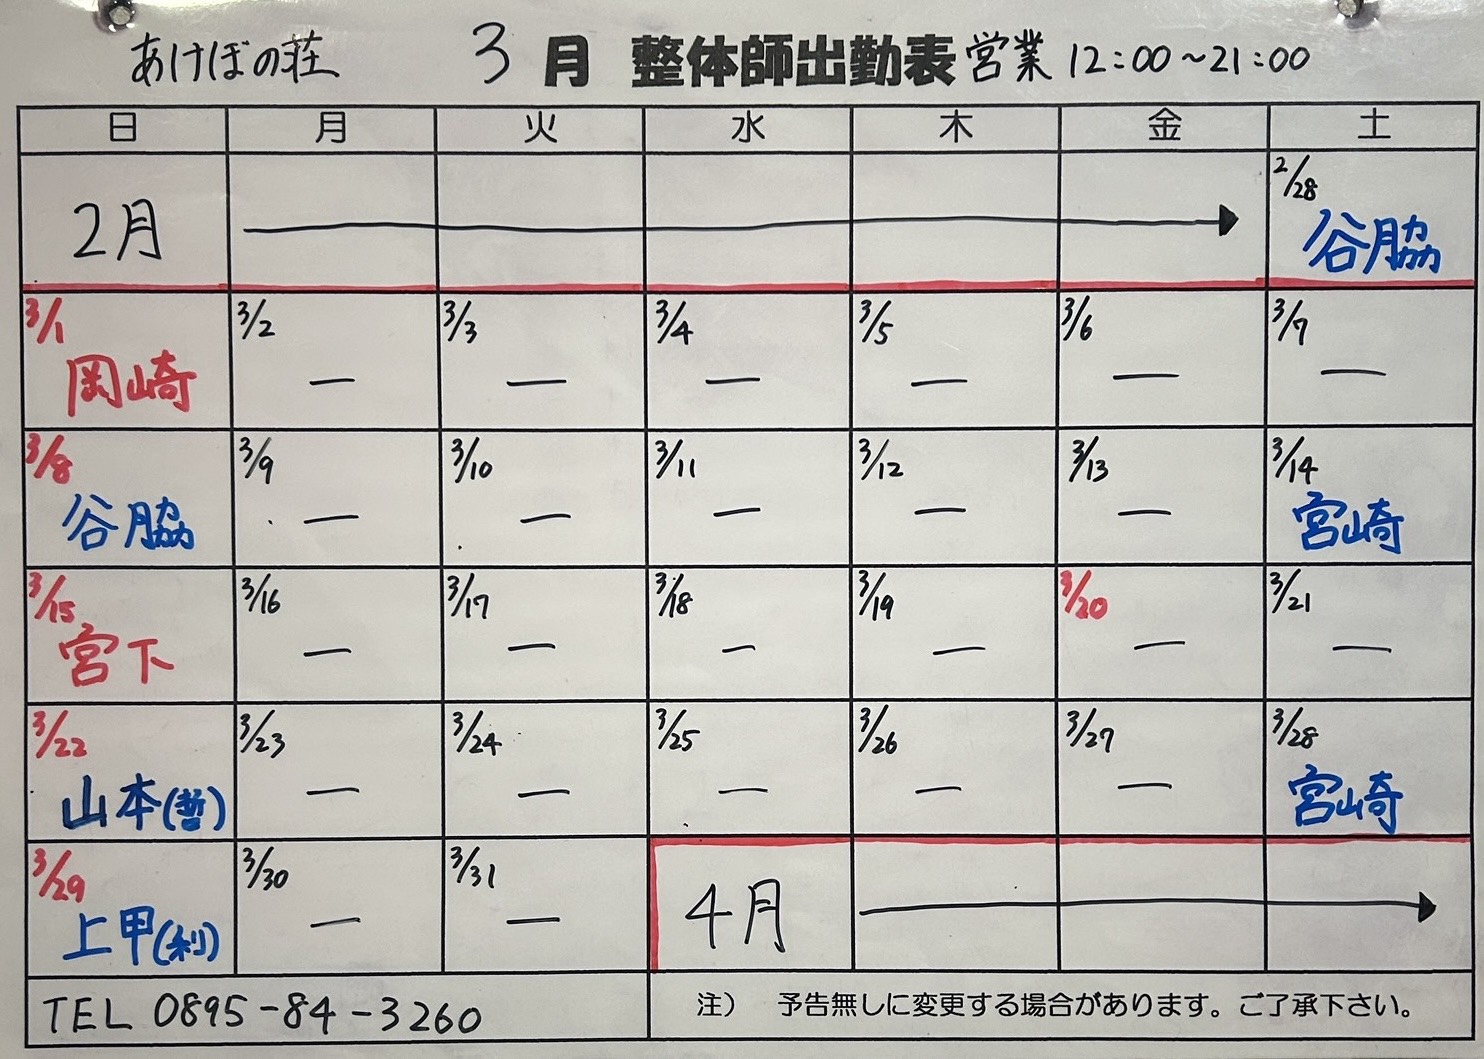 あけぼの荘 3月 整体師出勤表 営業 12:00～21:00
日 月 火 水 木 金 土
2月 2/28
谷脇
3/1 3/2 3/3 3/4 3/5 3/6 3/7
岡崎 ― ― ― ― ― ―
3/8 3/9 3/10 3/11 3/12 3/13 3/14
谷脇 ― ― ― ― ― 宮崎
3/15 3/16 3/17 3/18 3/19 3/20 3/21
宮下 ― ― ― ― ― ―
3/22 3/23 3/24 3/25 3/26 3/27 3/28
山本(哲) ― ― ― ― ― 宮崎
3/29 3/30 3/31 4月
上甲(利) ― ―
TEL 0895-84-3260
注） 予告無しに変更する場合があります。ご了承下さい。